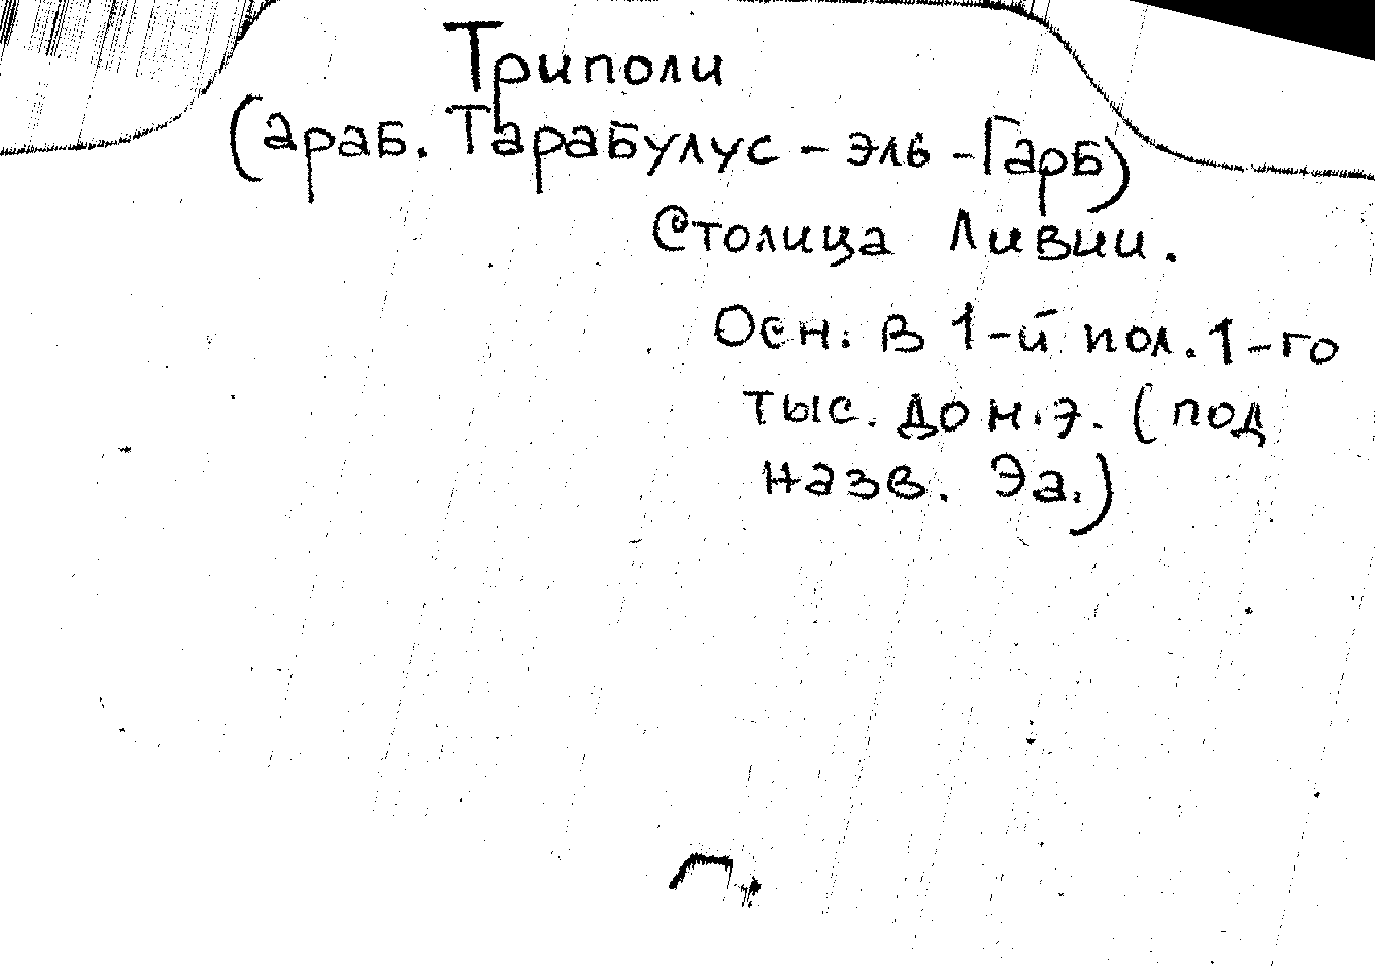 Триполи
(араб. Тарабулус-эль-Гарб)
Столица Ливии.
Осн. в 1-й пол. 1-го
тыс. до н.э. (под
назв. Эа.)